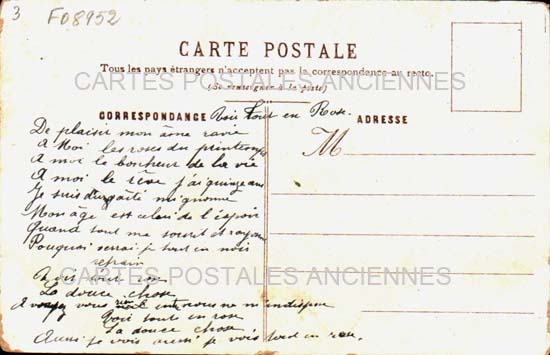 3 F08952
CARTE POSTALE
Tous les pays étrangers n'acceptent pas la correspondance au recto.
(Se renseigner à la poste)
CARTES POSTALES ANCIENNES
CORRESPONDANCE
ADRESSE
Vois tout en Rose.
M
De plaisir mon âme ravie
A Moi les roses du printemps
A moi le bonheur de la vie
A moi le rêve j'ai quinze ans
Je suis d'un gaîté mignonne
Mon âge est celui de l'espoir
Quand tout me sourit et rayonne
Pourquoi verrai je tout en noir
refrain
Vois tout en rose
CARTES POSTALES ANCIENNES
La douce chose
A vous rien ne m'indispose
Vois tout en rose
La douce chose
Aussi je vois aussi je vois tout en rose.